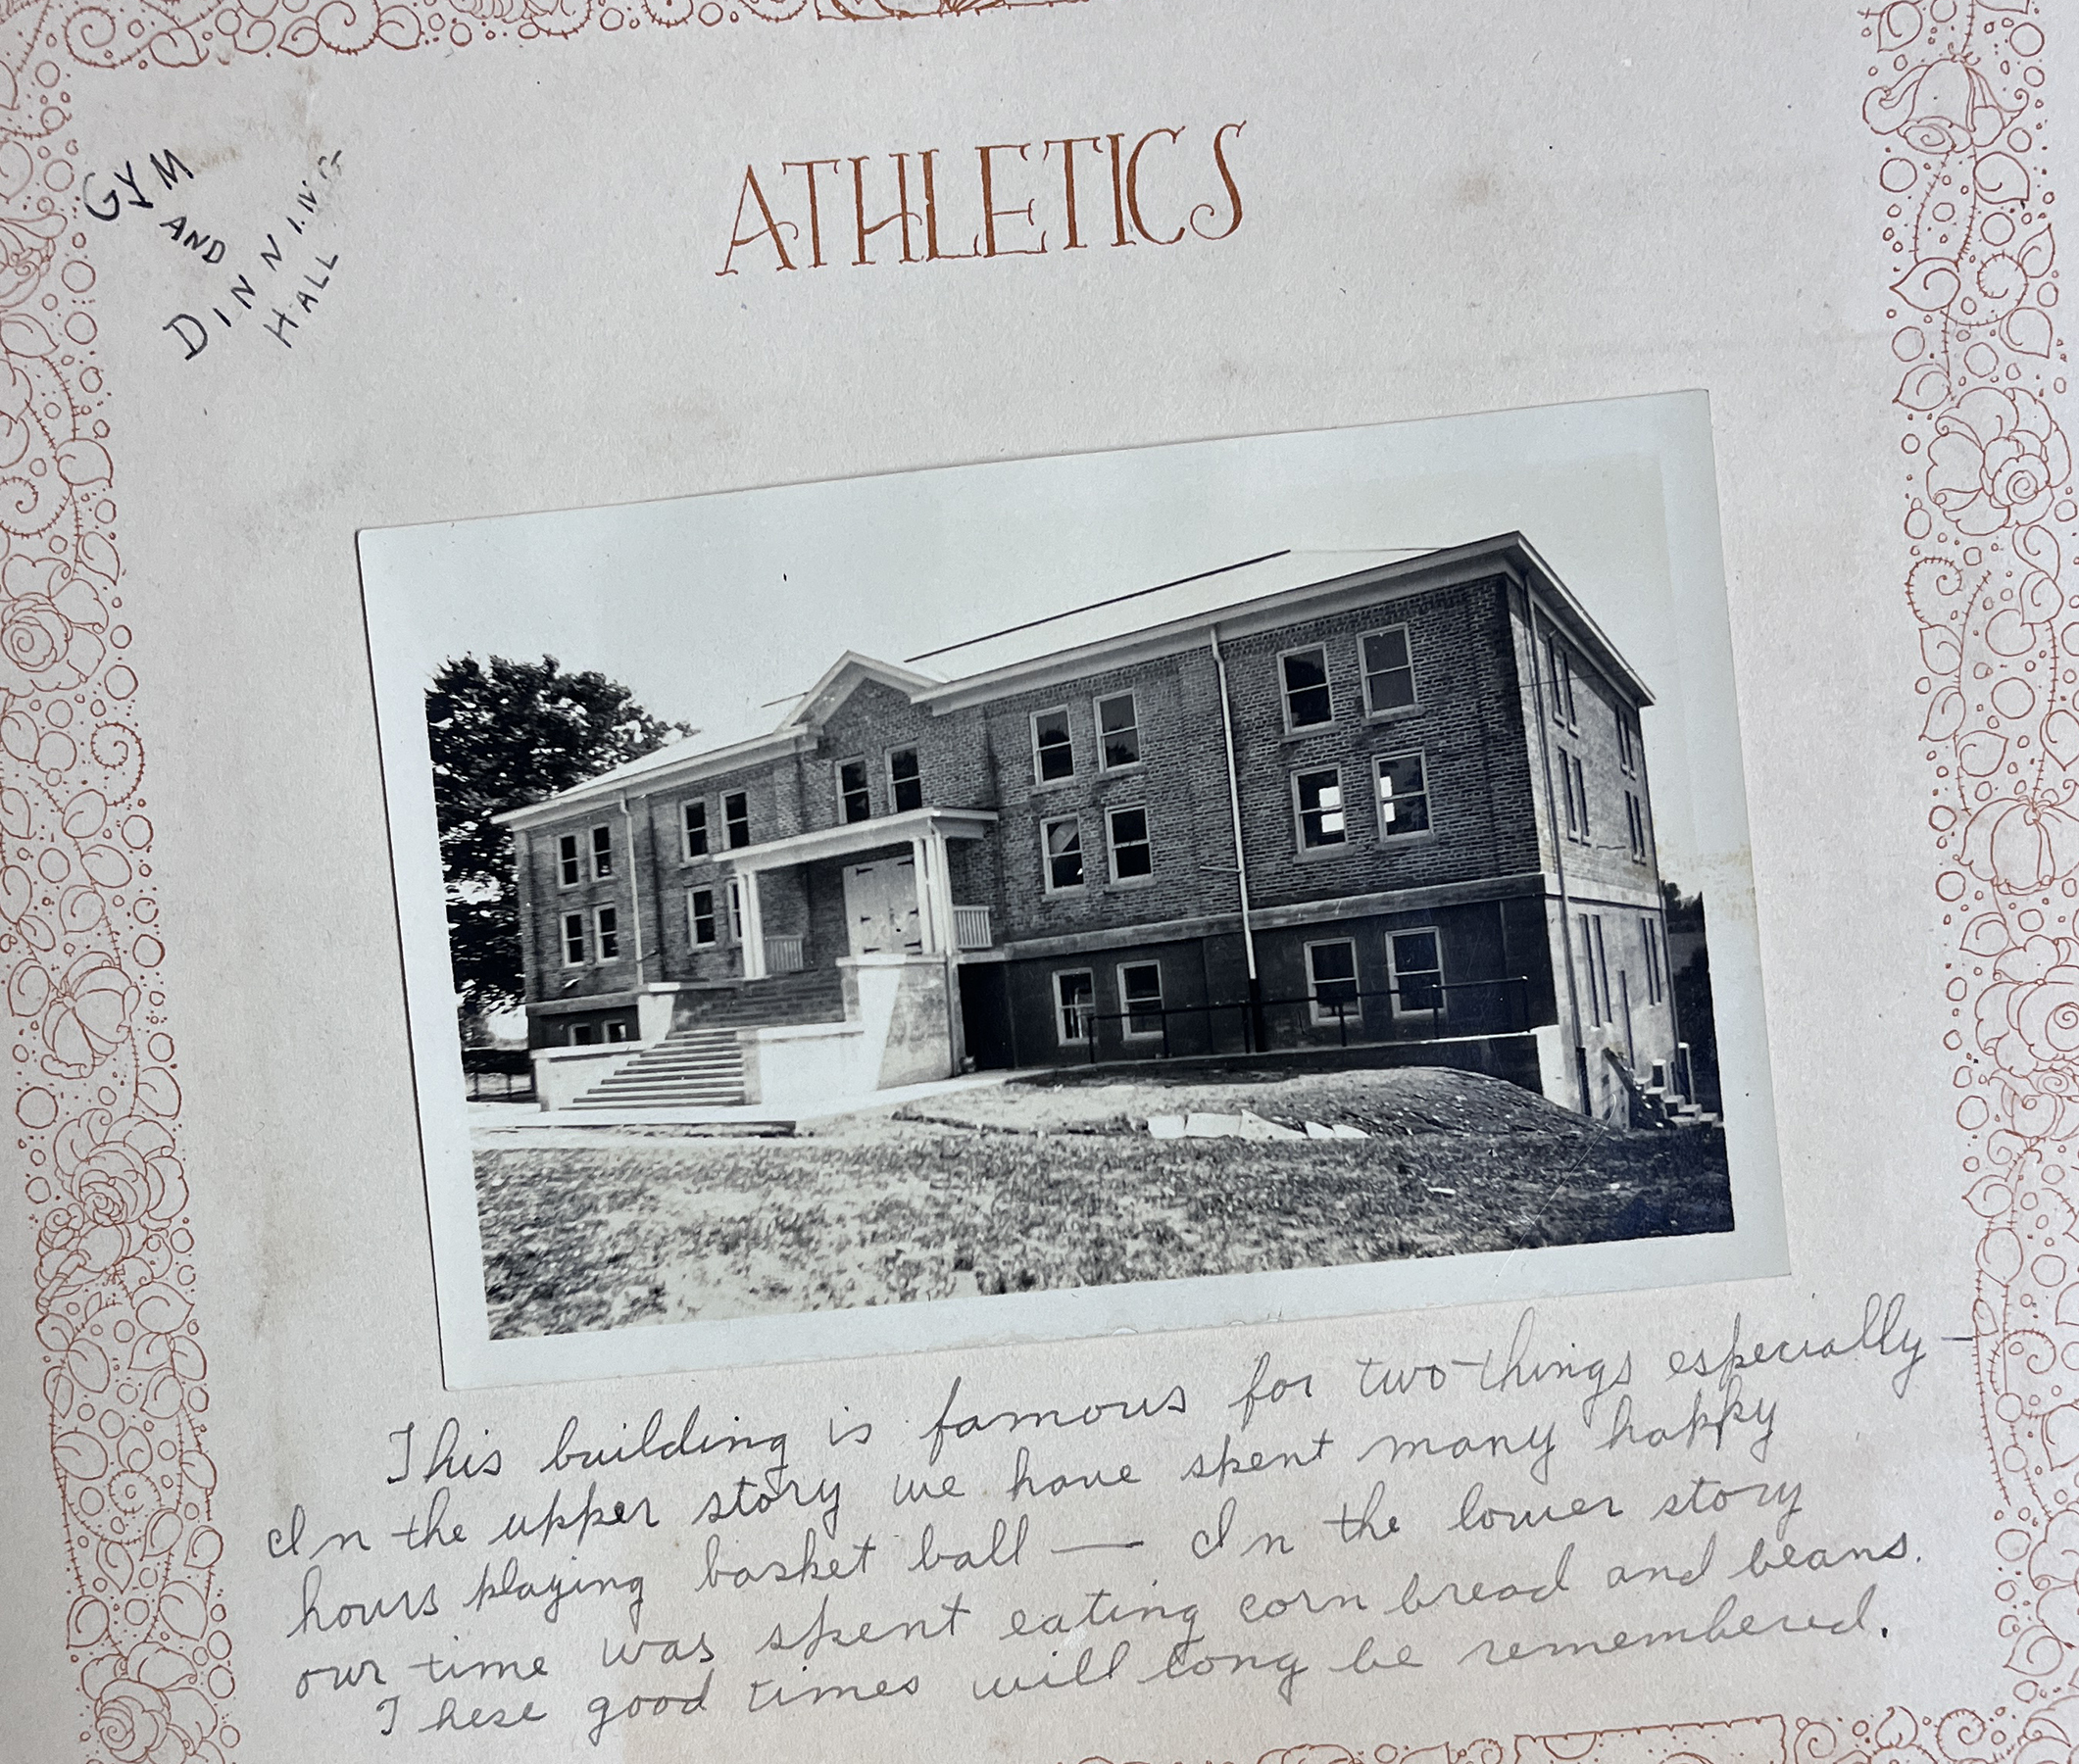 ATHLETICS
GYM
AND
DINNING
HALL
This building is famous for two things especially —
In the upper story we have spent many happy
hours playing basket ball — In the lower story
our time was spent eating corn bread and beans.
These good times will long be remembered.